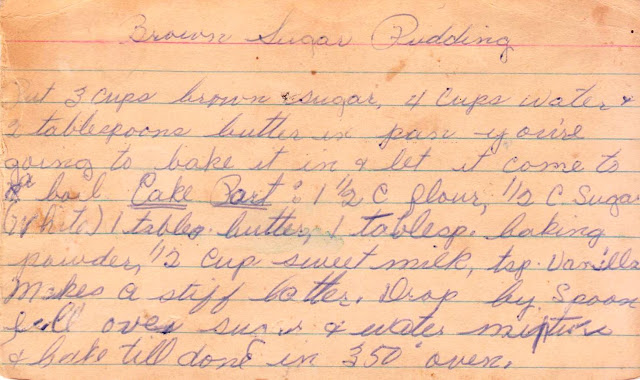 Brown Sugar Pudding
Put 3 cups brown sugar, 4 cups water &
2 tablespoons butter in pan you're
going to bake it in & let it come to
a boil Cake Part: 1 1/2 C flour, 1/2 C Sugar
(White) 1 tables. butter, 1 tablesp. baking
powder, 1/2 cup sweet milk, tsp. Vanilla
Makes a stiff batter. Drop by Spoon
full over sugar & water mixture
& bake till done in 350° oven.